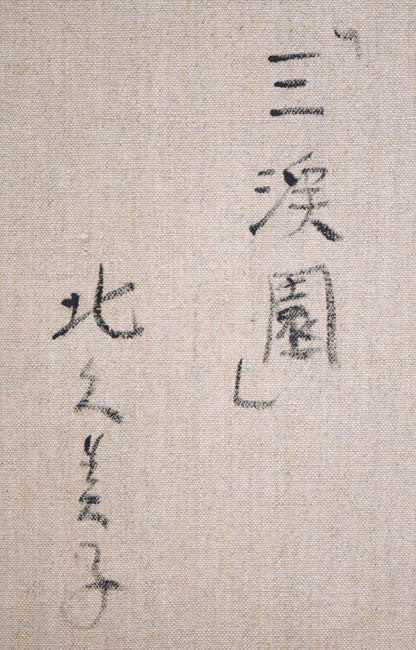 「三渓園」
北久美子